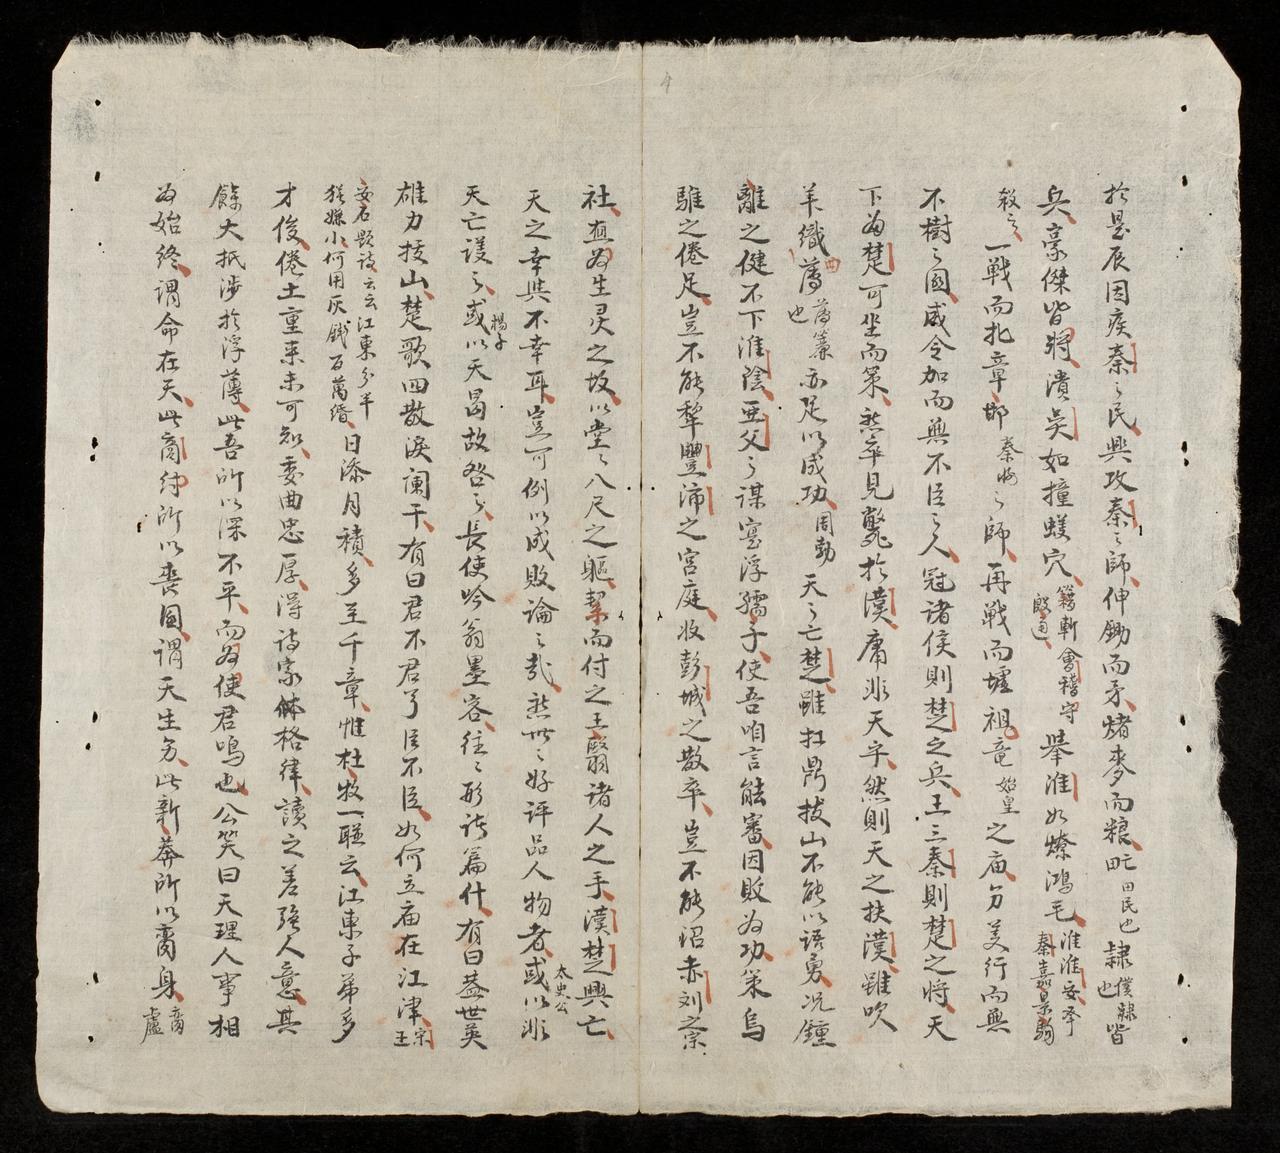 於昰辰因疾秦〻民興攻秦〻師伸鋤而矛熸麥而粮甿田民也隷僕隷也皆
兵豪傑皆將潰吳如撞蟻穴籍斬會稽守殷通舉淮如燎鴻毛淮淮安郡秦嘉景駒
殺之一戰而北章邯秦將之師再戰而墟祖竜始皇之庙分羙行而無
不樹〻國威令加而無不臣〻人冠诸侯則楚之兵王三秦則楚之將天
下為楚可坐而策然卒見斃於漢庸非天乎然則天之扶漢雖吹
羊織薄曲薄簾也亦足以成功周勃天〻亡楚雖扛鼎拔山不能以語勇况鍾
離之健不下淮陰亜父之谋寔浮孺子使吾咱言能審因敗為功策烏
騅之倦足豈不能犂豐沛之宮庭收彭城之散卒豈不能沼赤刘之宗
社亶為生灵之故以堂〻八尺之軀挈而付之王翳诸人之手漢楚興亡
天之幸與不幸耳豈可例以成敗論〻哉然世〻好評品人物者或以非太史公
天亡謖之或以天曷故咎之楊子長使吟翁墨客往〻形诸篇什有曰蓋世英
雄力拔山楚歌四散淚阑干有曰君不君兮臣不臣如何立庙在江津宗王
安石題诗云云江東分半猶嫌小何用灰錢百萬緡日添月積多至千章惟杜牧一聯云江東子弟多
才俊倦土重来未可知委曲忠厚得诗家体格律讀之差强人意其
餘大抵涉於浮薄此吾所以深不平而為使君鳴也公笑曰天理人事相
為始終謂命在天此商紂所以喪國謂天生予此新莽所以喪身商盧